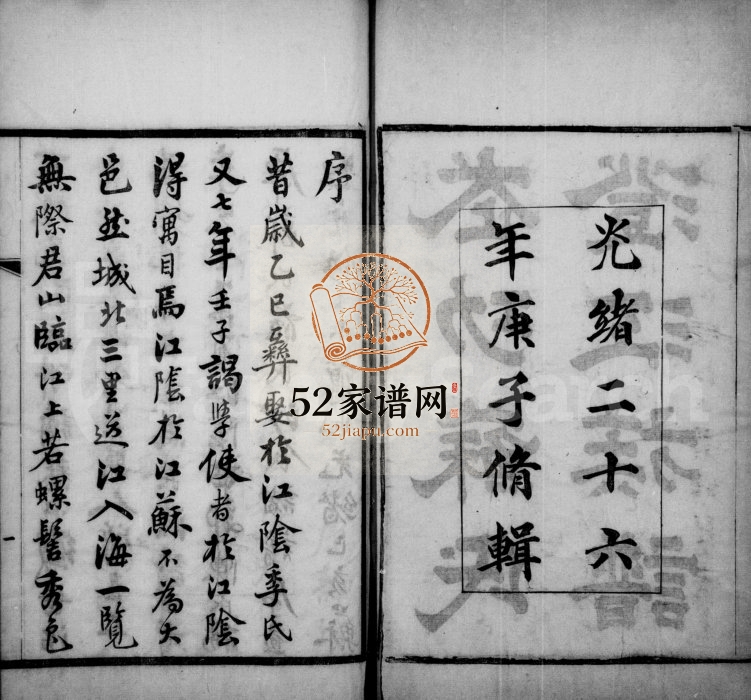 光緒二十六
年庚子脩輯
序
昔歲乙巳彞娶於江陰季氏
又七年壬子謁學使者於江陰
得寓目焉江陰於江蘇不為大
邑然城北三里送江入海一覽
無際君山臨江上若螺髻秀色
52家谱网
52jiapu.com